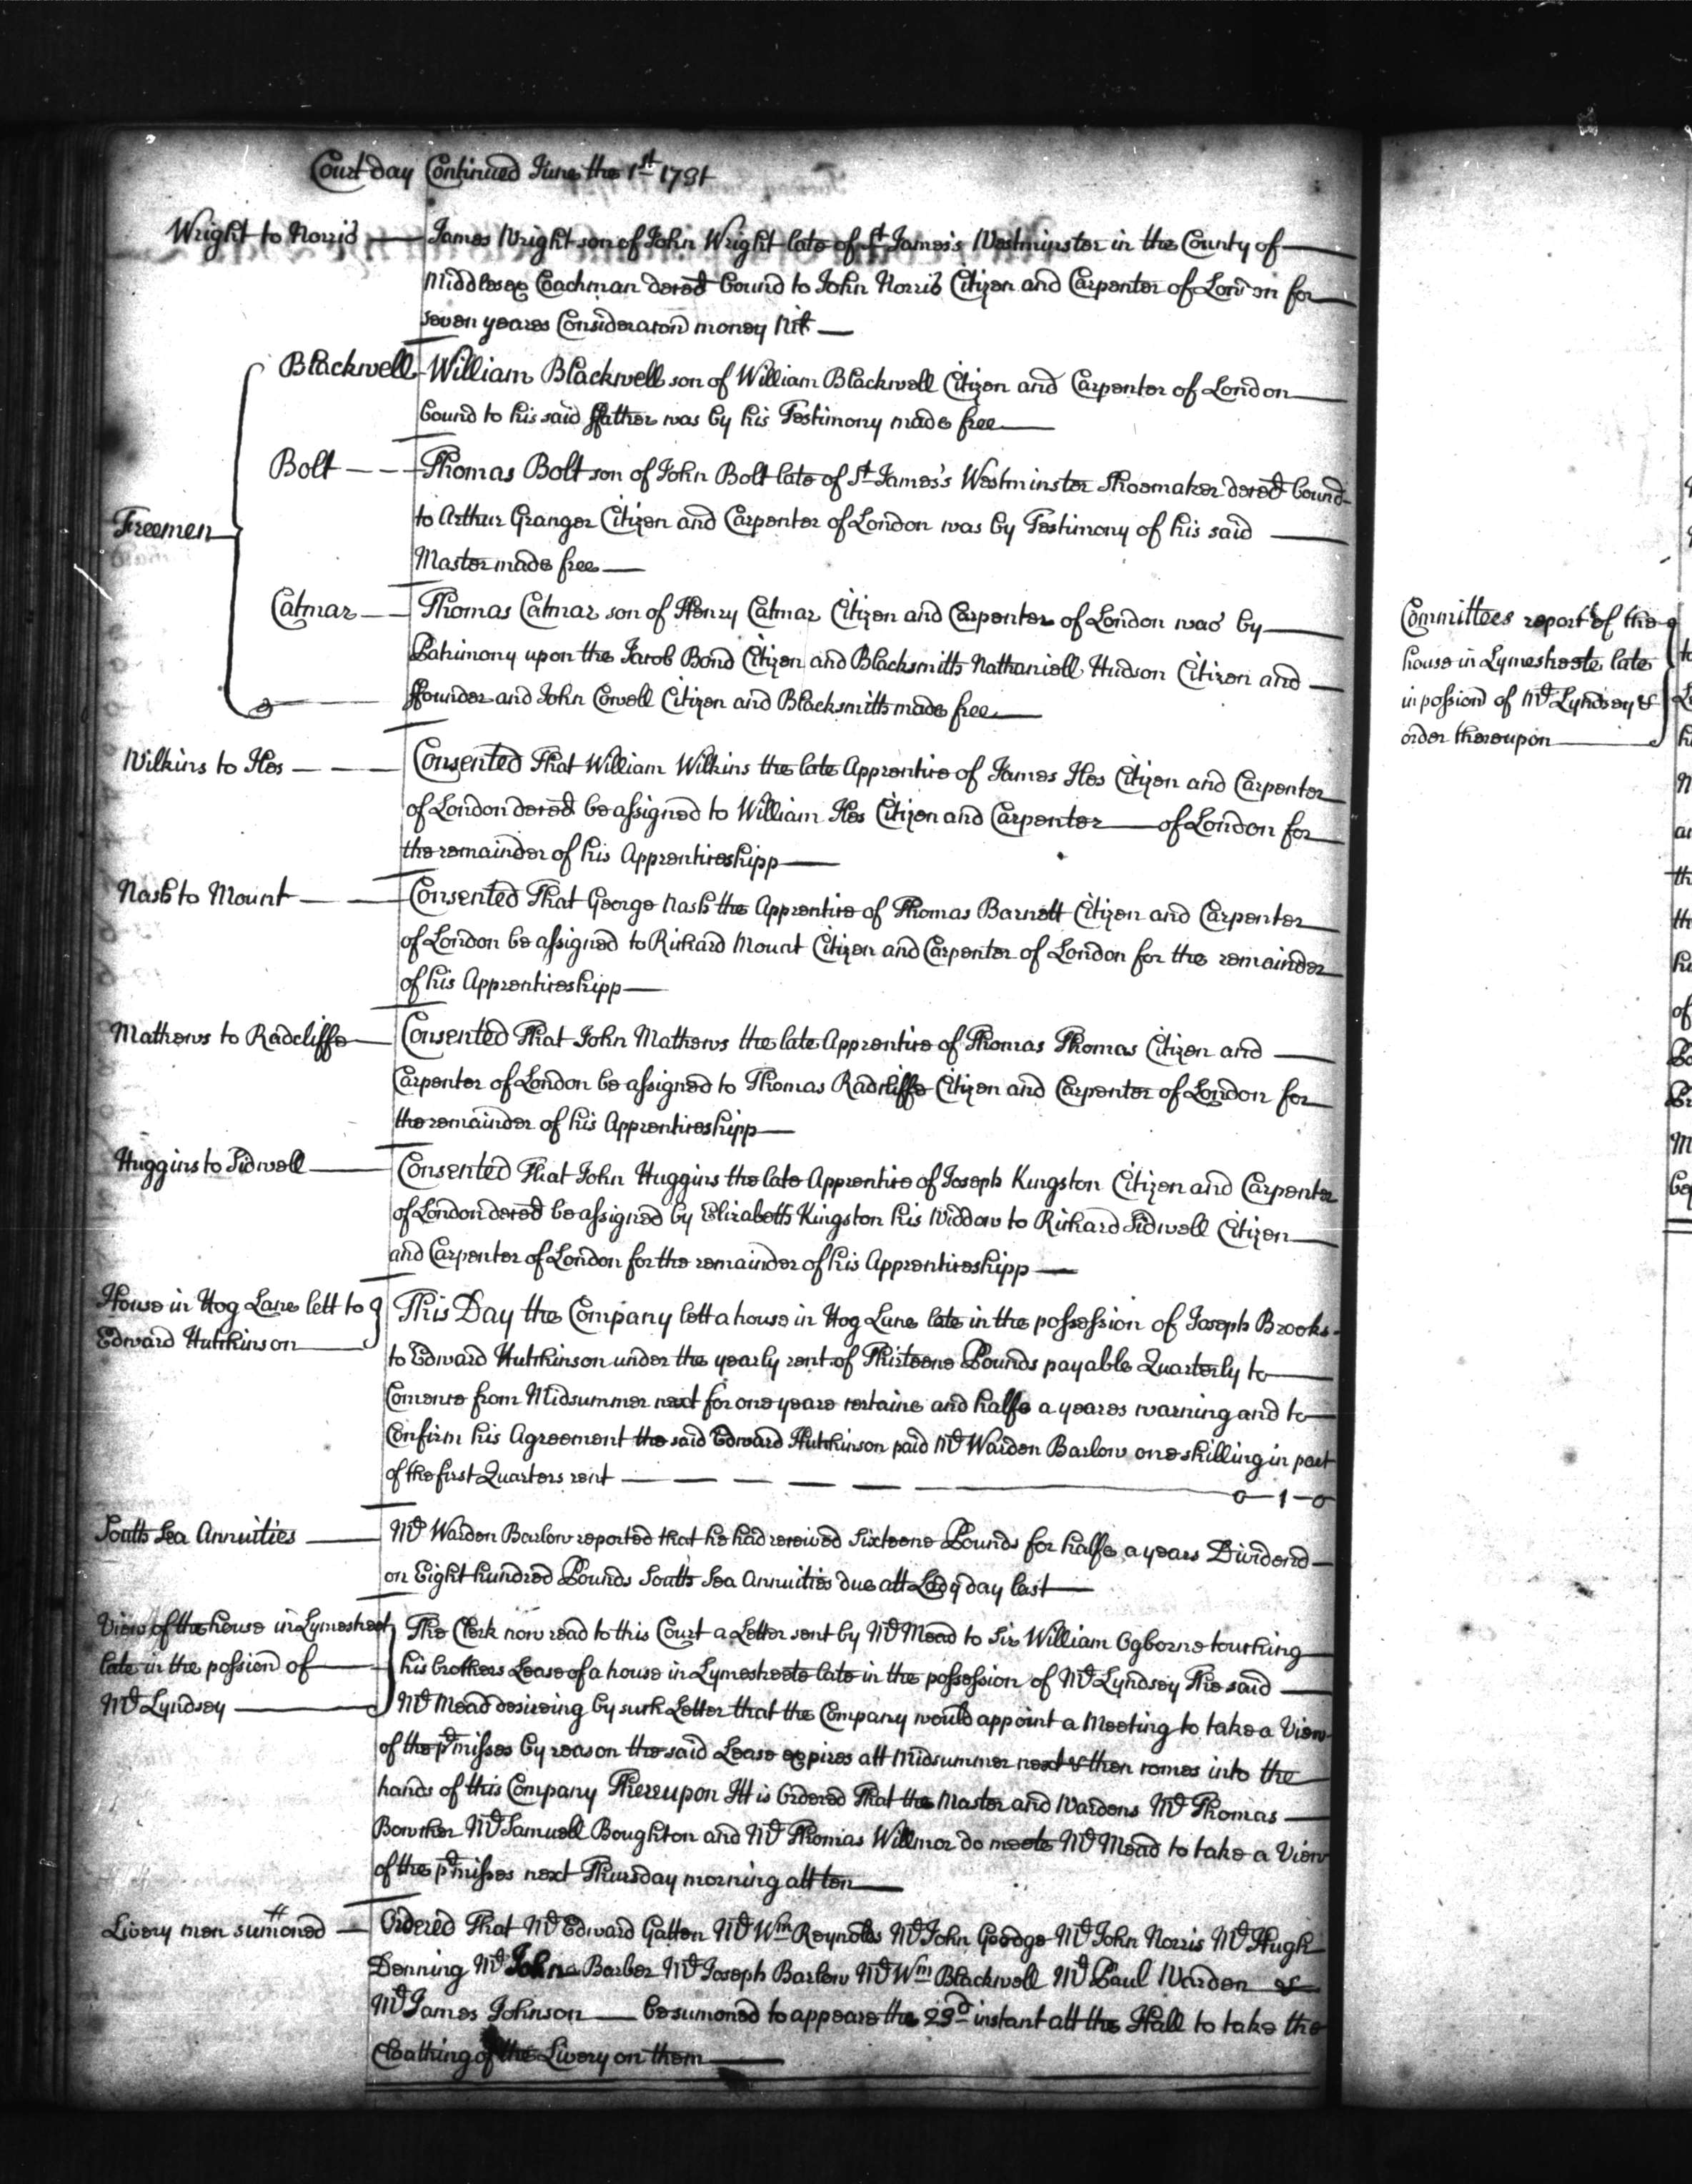 Court day Continued June the 1st 1731
Wright to Norris James Wright son of John Wright late of St James's Westminster in the County of
Middlesex Coachman deced bound to John Norris Citizen and Carpenter of London for
seven yeares Consideracon money Nil
Freemen
Blackwell William Blackwell son of William Blackwell Citizen and Carpenter of London
bound to his said ffather was by his Testimony made free
Bolt Thomas Bolt son of John Bolt late of St James's Westminster Shoemaker deced bound
to Arthur Granger Citizen and Carpenter of London was by Testimony of his said
Master made free
Catmar Thomas Catmar son of Henry Catmar Citizen and Carpenter of London was by
Patrimony upon the Jacob Bond Citizen and Blacksmith Nathaniell Hudson Citizen and
ffounder and John Cowell Citizen and Blacksmith made free
Wilkins to Iles Consented That William Wilkins the late Apprentice of James Iles Citizen and Carpenter
of London deced be assigned to William Iles Citizen and Carpenter of London for
the remainder of his Apprenticeshipp
Nash to Mount Consented That George Nash the Apprentice of Thomas Barnett Citizen and Carpenter
of London be assigned to Richard Mount Citizen and Carpenter of London for the remainder
of his Apprenticeshipp
Mathews to Radcliffe Consented That John Mathews the late Apprentice of Thomas Thomas Citizen and
Carpenter of London be assigned to Thomas Radcliffe Citizen and Carpenter of London for
the remainder of his Apprenticeshipp
Huggins to Sidwell Consented That John Huggins the late Apprentice of Joseph Kingston Citizen and Carpenter
of London deced be assigned by Elizabeth Kingston his Widdow to Richard Sidwell Citizen
and Carpenter of London for the remainder of his Apprenticeshipp
House in Hog Lane lett to
Edward Hutchinson
This Day the Company lett a house in Hog Lane late in the possession of Joseph Brooks
to Edward Hutchinson under the yearly rent of Thirteene Pounds payable Quarterly to
Comence from Midsummer next for one yeare certaine and halfe a yeares warning and to
Confirm his Agreement the said Edward Hutchinson paid Mr Warden Barlow one shilling in part
of the first Quarters rent 0-1-0
South Sea Annuities Mr Warden Barlow reported that he had received Sixteene Pounds for halfe a years Dividend
on Eight hundred Pounds South Sea Annuities due att Lady day last
View of the house in Lymestreet
late in the possion of
Mr Lyndsey
The Clerk now read to this Court a Letter sent by Mr Mead to Sir William Ogborne touching
his brothers Lease of a house in Lymestreete late in the possession of Mr Lyndsey The said
Mr Mead desireing by such Letter that the Company would appoint a Meeting to take a View
of the pr'misses by reason the said Lease expires att Midsummer next & then comes into the
hands of this Company Thereupon Itt is Ordered That the Master and Wardens Mr Thomas
Bowcher Mr Samuell Boughton and Mr Thomas Willmor do meete Mr Mead to take a View
of the pr'misses next Thursday morning att ten
Livery men sumoned Ordered That Mr Edward Gatton Mr Wm Reynolds Mr John Goodge Mr John Norris Mr Hugh
Denning Mr John Barber Mr Joseph Barlow Mr Wm Blackwell Mr Paul Warden &
Mr James Johnson be sumoned to appeare the 23d instant att the Hall to take the
Cloathing of the Livery on them
Committees report of the
house in Lymestreete late
in possion of Mr Lyndsey &
order thereupon